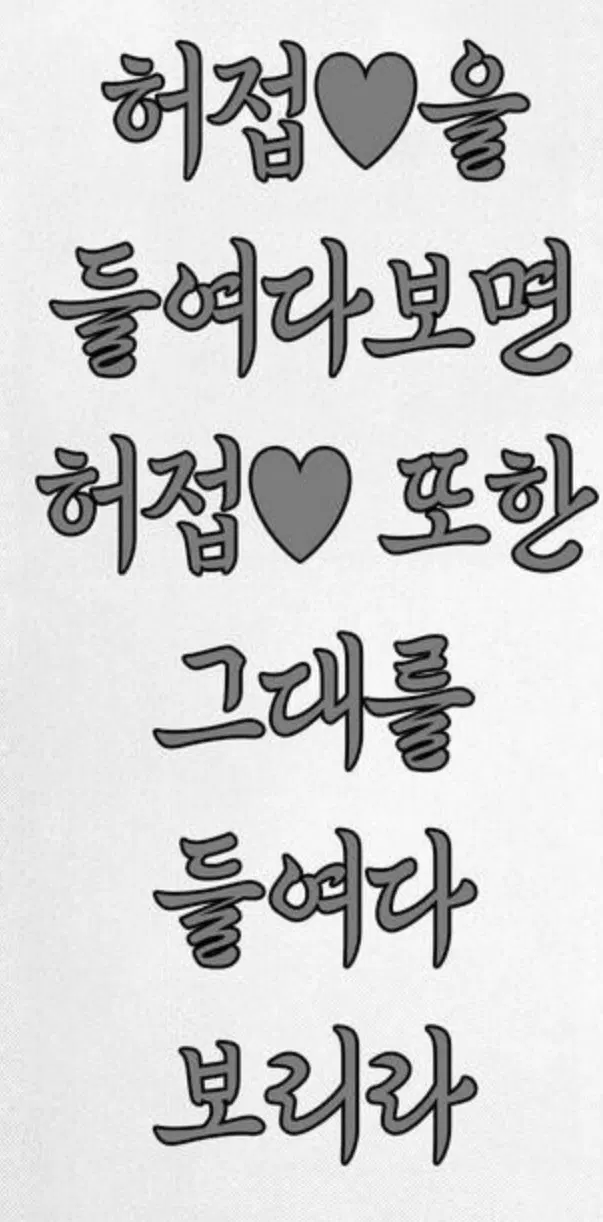 허접♥을
들여다보면
허접♥ 또한
그대를
들여다
보리라